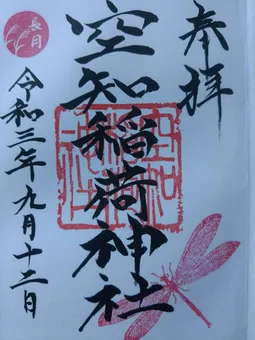 奉拝
空知稲荷神社
長月
令和三年九月十二日